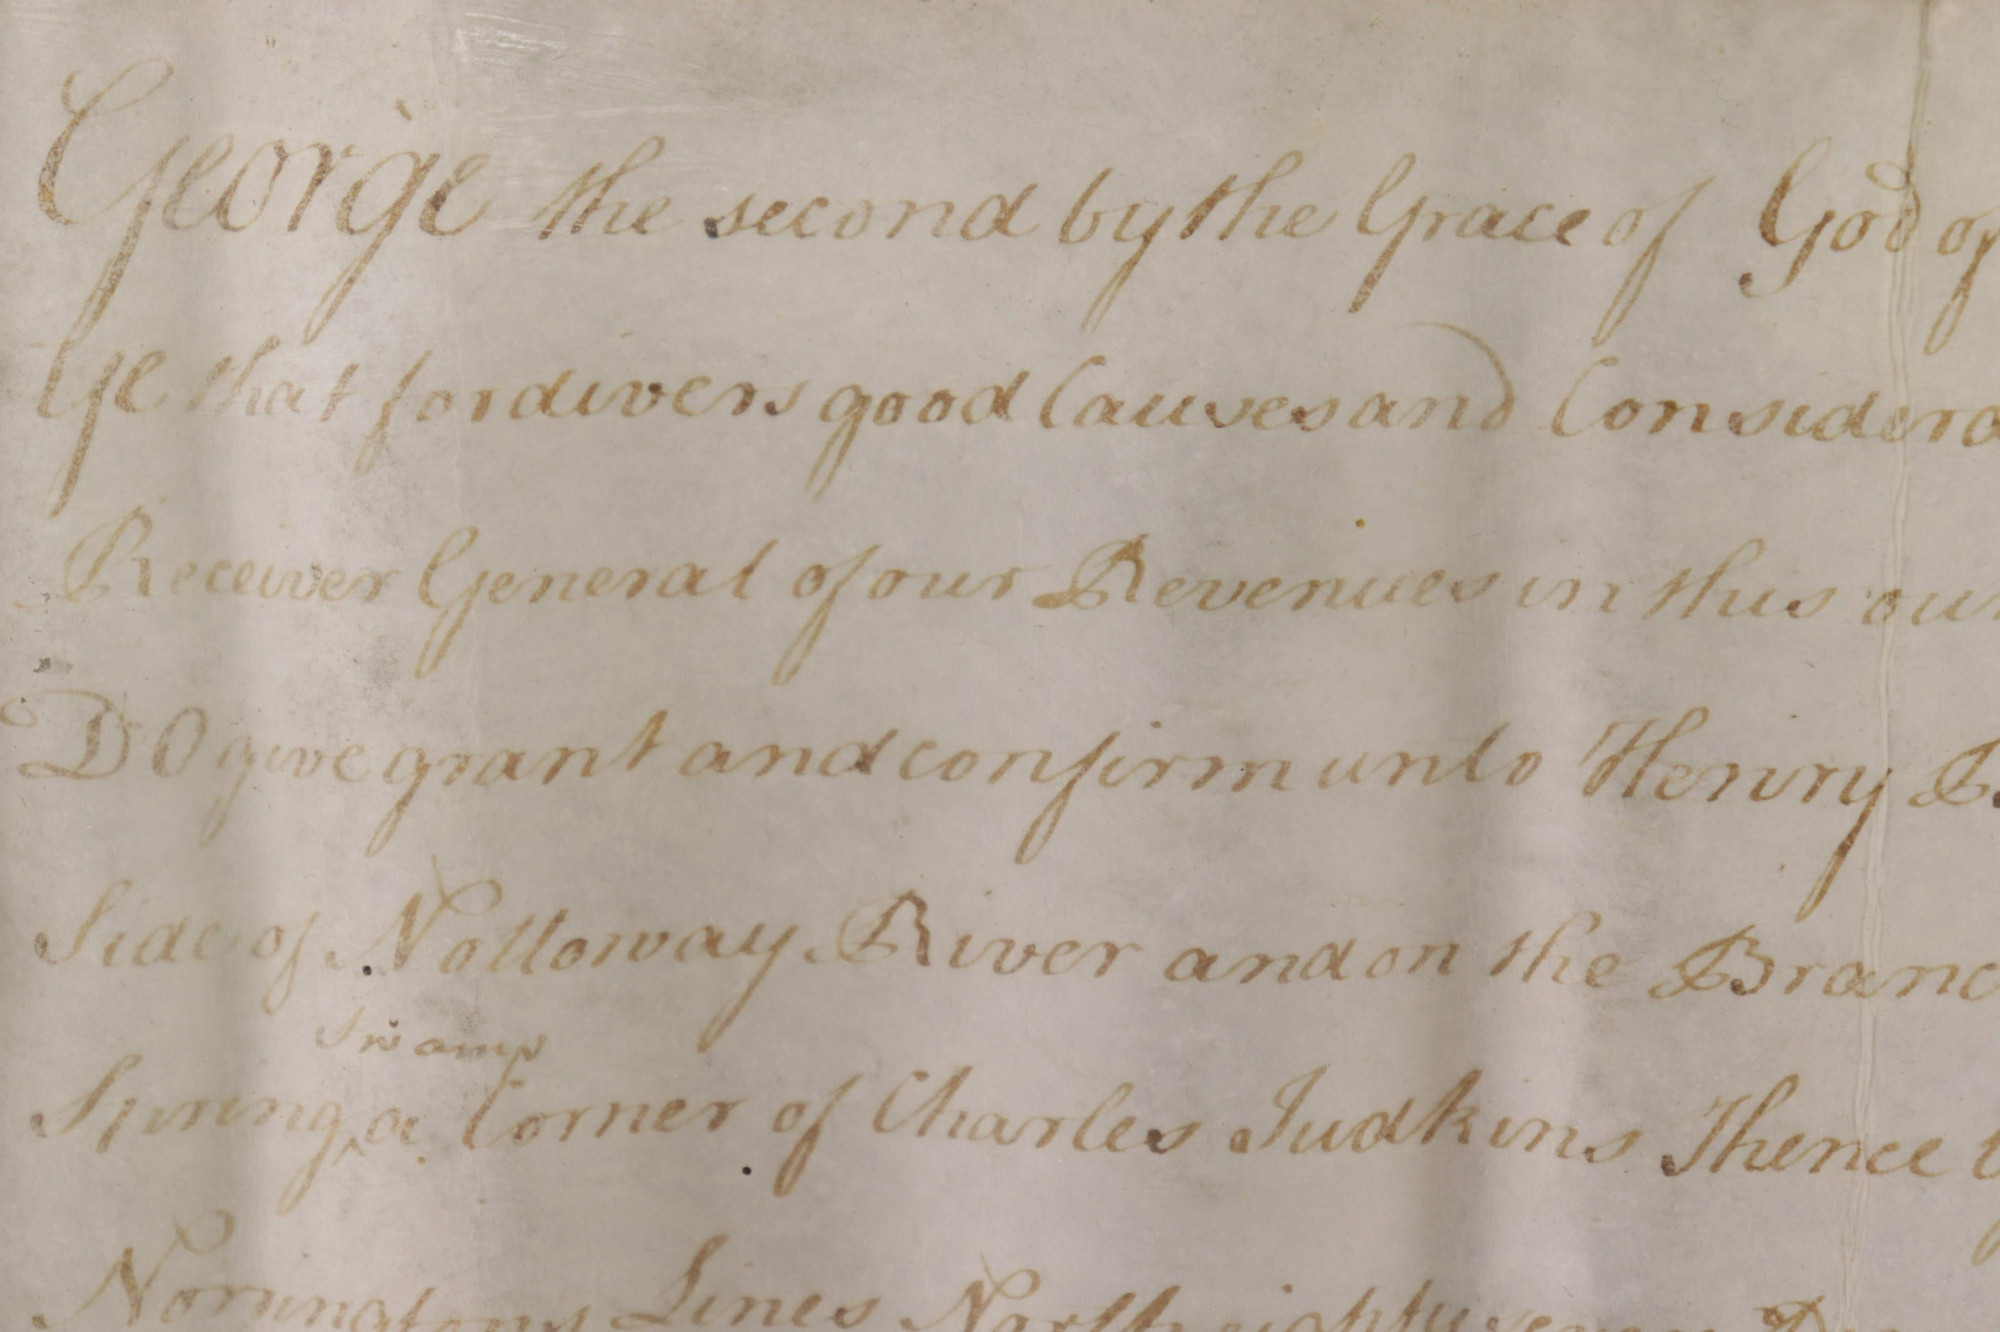 George the second by the Grace of God of
Ye that for divers good Causes and Considera
Receiver General of our Revenues in this our
DO give grant and confirm unto Henry B
Side of Nottoway River and on the Branc
Swamp
Spring a Corner of Charles Judkins Thence b
Norningtons Lines North eighty seven De